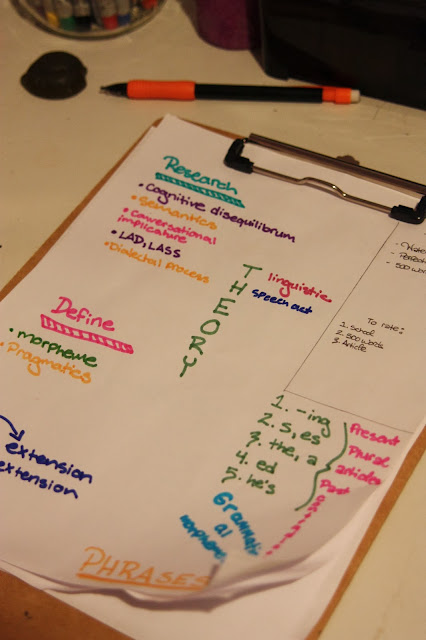 Research
• Cognitive disequilibrum
• Semantics
• Conversational
implicature
• LAD, LASS
• Dialectal process
THEORY
linguistic
speech act
Define
• morpheme
• Pragmatics
extension
extension
PHRASES
1. -ing
2. s, es
3. the, a
4. ed
5. he's
Present
Plural
articles
Past
Grammatic
al
morpheme
- 500 wor
To rate:
1. School
2. 500 words
3. Article